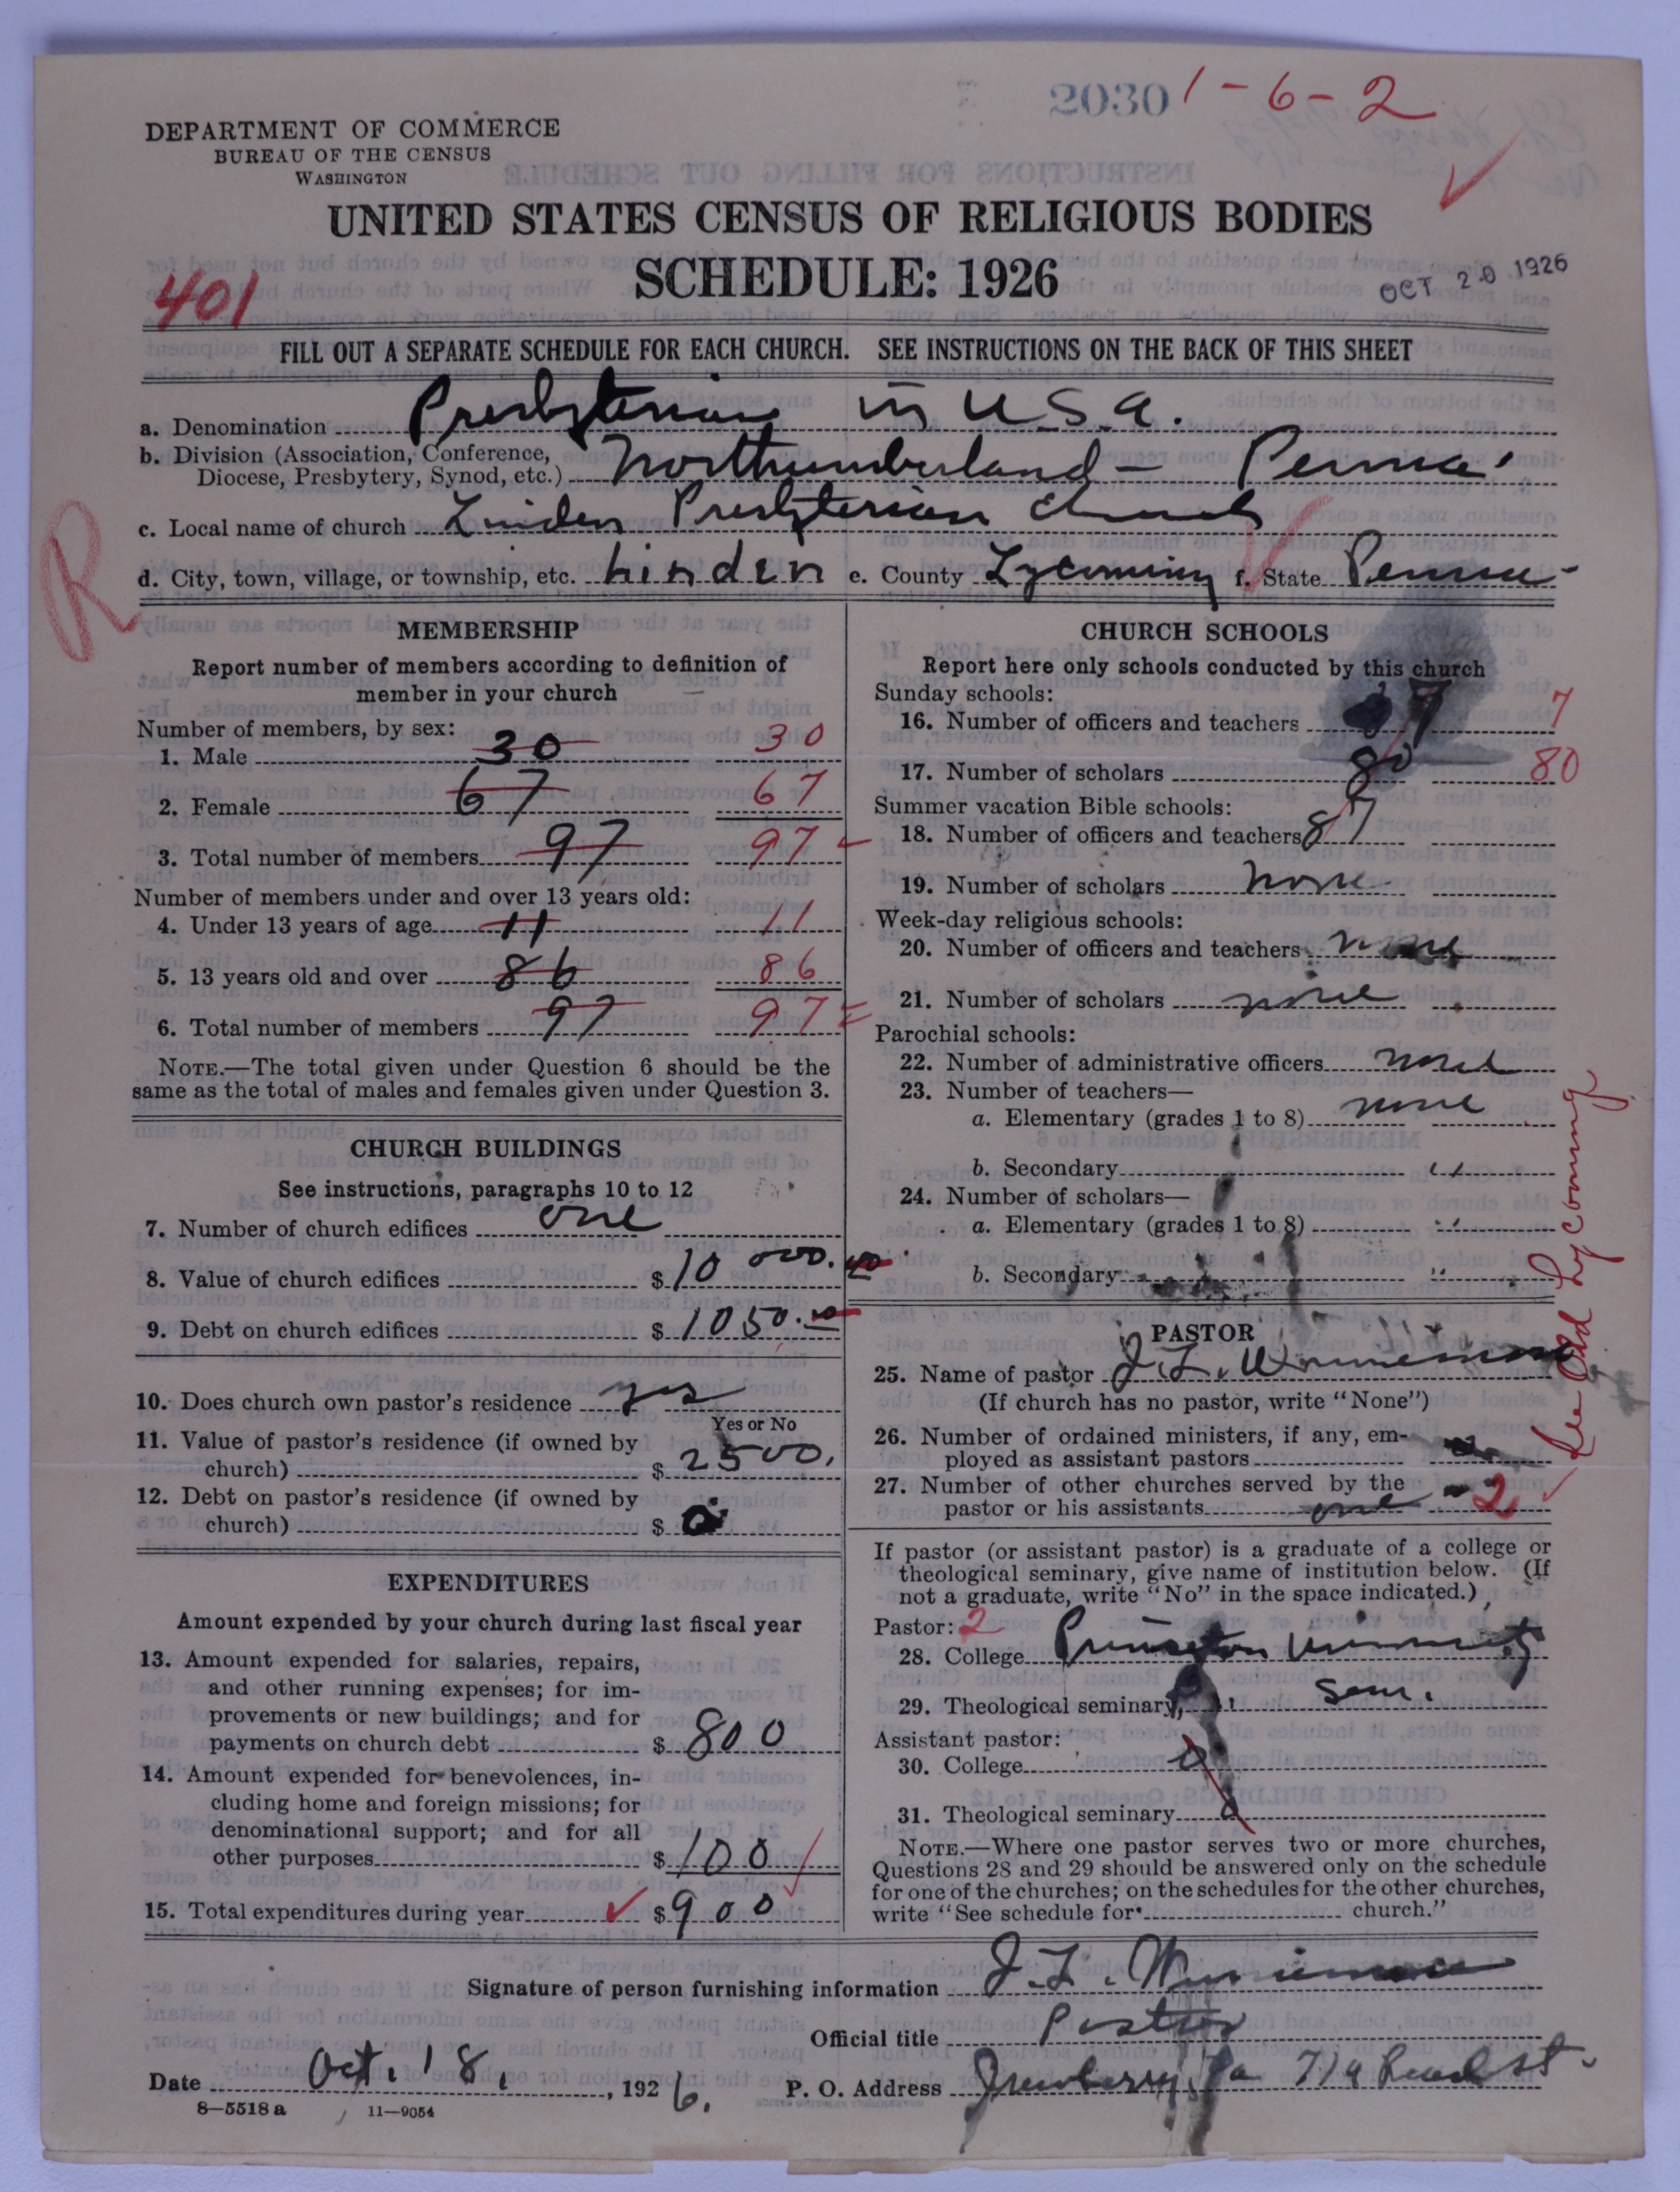 2030 1-6-2
DEPARTMENT OF COMMERCE
BUREAU OF THE CENSUS
WASHINGTON
UNITED STATES CENSUS OF RELIGIOUS BODIES
SCHEDULE: 1926
401
OCT 20 1926
FILL OUT A SEPARATE SCHEDULE FOR EACH CHURCH. SEE INSTRUCTIONS ON THE BACK OF THIS SHEET
a. Denomination Presbyterian in U.S.a.
b. Division (Association, Conference,
Diocese, Presbytery, Synod, etc.) Northumberland - Penna.
c. Local name of church Linden Presbyterian Church
d. City, town, village, or township, etc. Linden e. County Lycoming f. State Penna-
R
MEMBERSHIP
Report number of members according to definition of
member in your church
Number of members, by sex:
1. Male 30 30
2. Female 67 67
3. Total number of members 97 97
Number of members under and over 13 years old:
4. Under 13 years of age 11 11
5. 13 years old and over 86 86
6. Total number of members 97 97
NOTE.—The total given under Question 6 should be the
same as the total of males and females given under Question 3.
CHURCH BUILDINGS
See instructions, paragraphs 10 to 12
7. Number of church edifices one
8. Value of church edifices $10 000.00
9. Debt on church edifices $1050.00
10. Does church own pastor's residence yes
Yes or No
11. Value of pastor's residence (if owned by
church) $2500.
12. Debt on pastor's residence (if owned by
church) $0
EXPENDITURES
Amount expended by your church during last fiscal year
13. Amount expended for salaries, repairs,
and other running expenses; for im-
provements or new buildings; and for
payments on church debt $800
14. Amount expended for benevolences, in-
cluding home and foreign missions; for
denominational support; and for all
other purposes $100
15. Total expenditures during year $900
CHURCH SCHOOLS
Report here only schools conducted by this church
Sunday schools:
16. Number of officers and teachers 7 7
17. Number of scholars 80 80
Summer vacation Bible schools:
18. Number of officers and teachers 87
19. Number of scholars none
Week-day religious schools:
20. Number of officers and teachers none
21. Number of scholars none
Parochial schools:
22. Number of administrative officers none
23. Number of teachers—
a. Elementary (grades 1 to 8) none
b. Secondary "
24. Number of scholars—
a. Elementary (grades 1 to 8) "
b. Secondary "
PASTOR
25. Name of pastor J. L.
(If church has no pastor, write "None")
26. Number of ordained ministers, if any, em-
ployed as assistant pastors
27. Number of other churches served by the
pastor or his assistants one 2
See Old Lycoming
If pastor (or assistant pastor) is a graduate of a college or
theological seminary, give name of institution below. (If
not a graduate, write "No" in the space indicated.)
Pastor: 2
28. College Princeton University
29. Theological seminary, " Sem.
Assistant pastor:
30. College 0
31. Theological seminary 0
NOTE.—Where one pastor serves two or more churches,
Questions 28 and 29 should be answered only on the schedule
for one of the churches; on the schedules for the other churches,
write "See schedule for church."
Signature of person furnishing information J. L.
Official title Pastor
Date Oct. 18, 1926. P. O. Address Newberry, Pa 719 st.
8—5518 a 11—9054